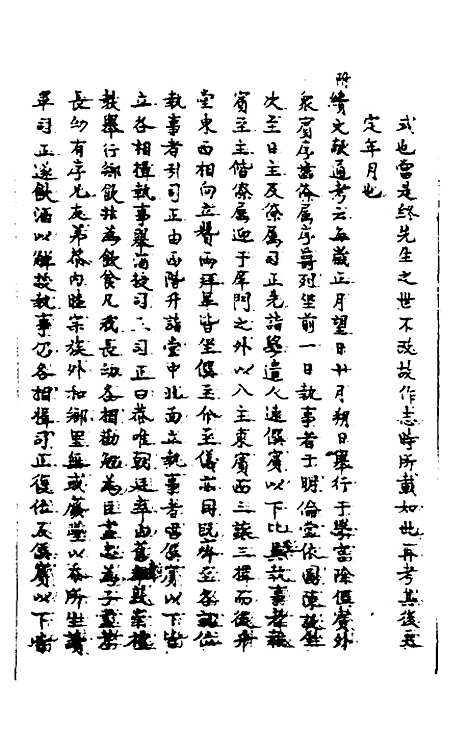 式也當是終先生之世不改故作志時所載如此再考其後
定年月也
附續文献通考云每歲正月望日十月朔日舉行于學當除僎賓外
衆賓序齒僚屬序爵列坐前一日執事者于明倫堂依圖陳設坐
次至日主及僚屬司正先詣學遣人速僎賓以下比至執事者
賓至主偕僚屬迎于庠門之外以入主東賓西三讓三揖而後升
堂東西相向立贊兩拜畢皆坐僎至介至儀並同既齊至各就位
執事者引司正由西階升詣堂中北面立執事者唱僎賓以下皆
立各相揖執事舉酒授司正司正曰恭唯朝廷率由舊章敦崇禮
教舉行鄉飲非為飲食凡我長幼各相勸勉為臣盡忠為子盡孝
長幼有序兄友弟恭内睦宗族外和鄉里無或廢墜以忝所生讀
畢司正遂飲酒以觶授執事仍各相揖司正復位及僎賓以下皆